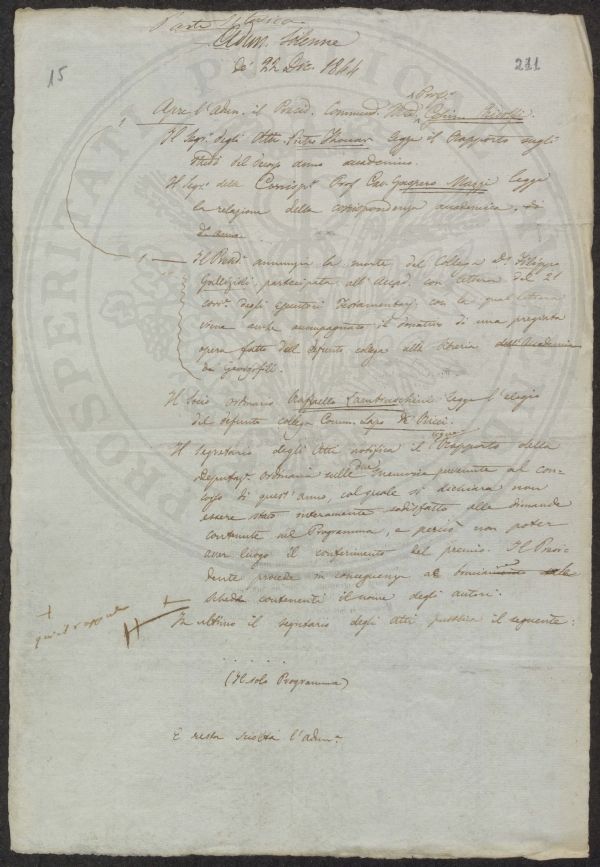 Parte Istorica
Adun. Solenne
De' 22 Dic. 1844
15
211
Prof.
Apre l'adun. il Presid. Commend.
Il Segr.º degli Atti Pietro Thouar legge il Rapporto sugli
studi del decorso anno accademico.
Il Segr.º delle Corrisp.e Prof. Cav. Gaspero Mazzi legge
la relazione della corrispondenza accademica.
Il Presid. annunzia la morte del Collega
Gallizioli, partecipata all'Accad. con lettera del 21
corr.e degli esecutori testamentarj, con la qual lettera
viene anche accompagnato il donativo di una pregiata
opera fatto dal defunto collega alla libreria dell'Accademia
de' Georgofili.
Il Socio ordinario Raffaello Lambruschini legge l'elogio
del defunto collega Comm. Lapo de' Ricci.
Il segretario degli Atti notifica il Rapporto della
Deputaz.e ordinaria sulle due Memorie pervenute al con-
corso di quest'anno, col quale si dichiara non
essere stato interamente sodisfatto alle dimande
contenute nel Programma, e perciò non poter
aver luogo il conferimento del premio. Il Presi-
dente procede in conseguenza al
schede contenenti il nome degli autori.
In ultimo il segretario degli Atti pubblica il seguente:
. . . . .
(Il solo Programma)
E resta sciolta l'adun.a